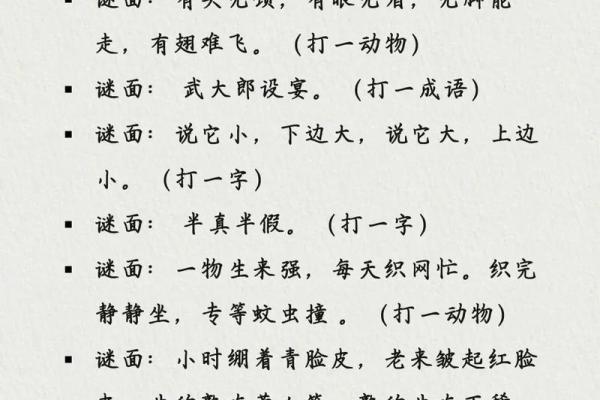 走，有翅难飞。（打一动物）
▪ 谜面： 武大郎设宴。（打一成语）
▪ 谜面：说它小，下边大，说它大，上边
小。（打一字）
▪ 谜面： 半真半假。（打一字）
▪ 谜面：一物生来强，每天织网忙。织完
静静坐，专等蚊虫撞 。（打一动物）
▪ 谜面：小时绷着青脸皮，老来皱起红脸